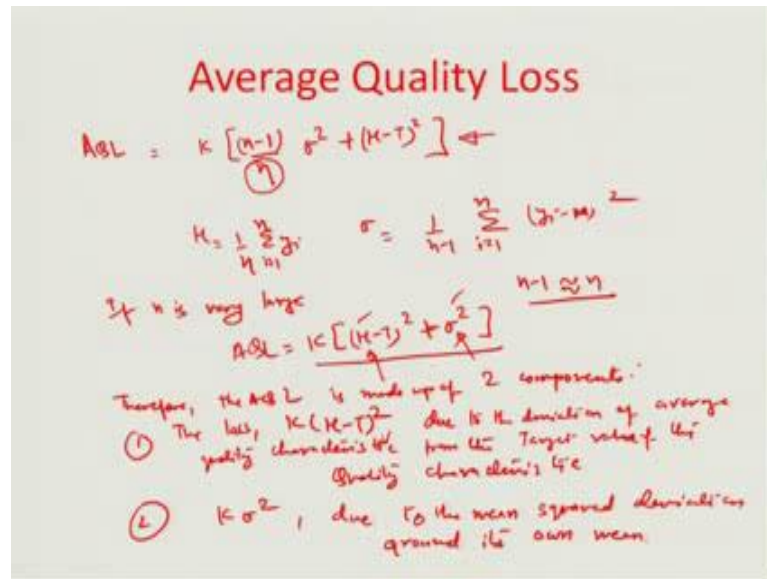 Average Quality Loss
AQL = K [(n-1)/n σ² + (μ-T)²] ←
μ = 1/n Σ_{i=1}^{n} yi   σ = 1/(n-1) Σ_{i=1}^{n} (yi-μ)²
If n is very large   n-1 ≈ n
AQL = K[(μ-T)² + σ²]
Therefore, the AQL is made up of 2 components.
① The loss, K(μ-T)² due to the deviation of average
quality characteristic from the Target value of the
Quality characteristic
② Kσ², due to the mean squared deviation
around its own mean.